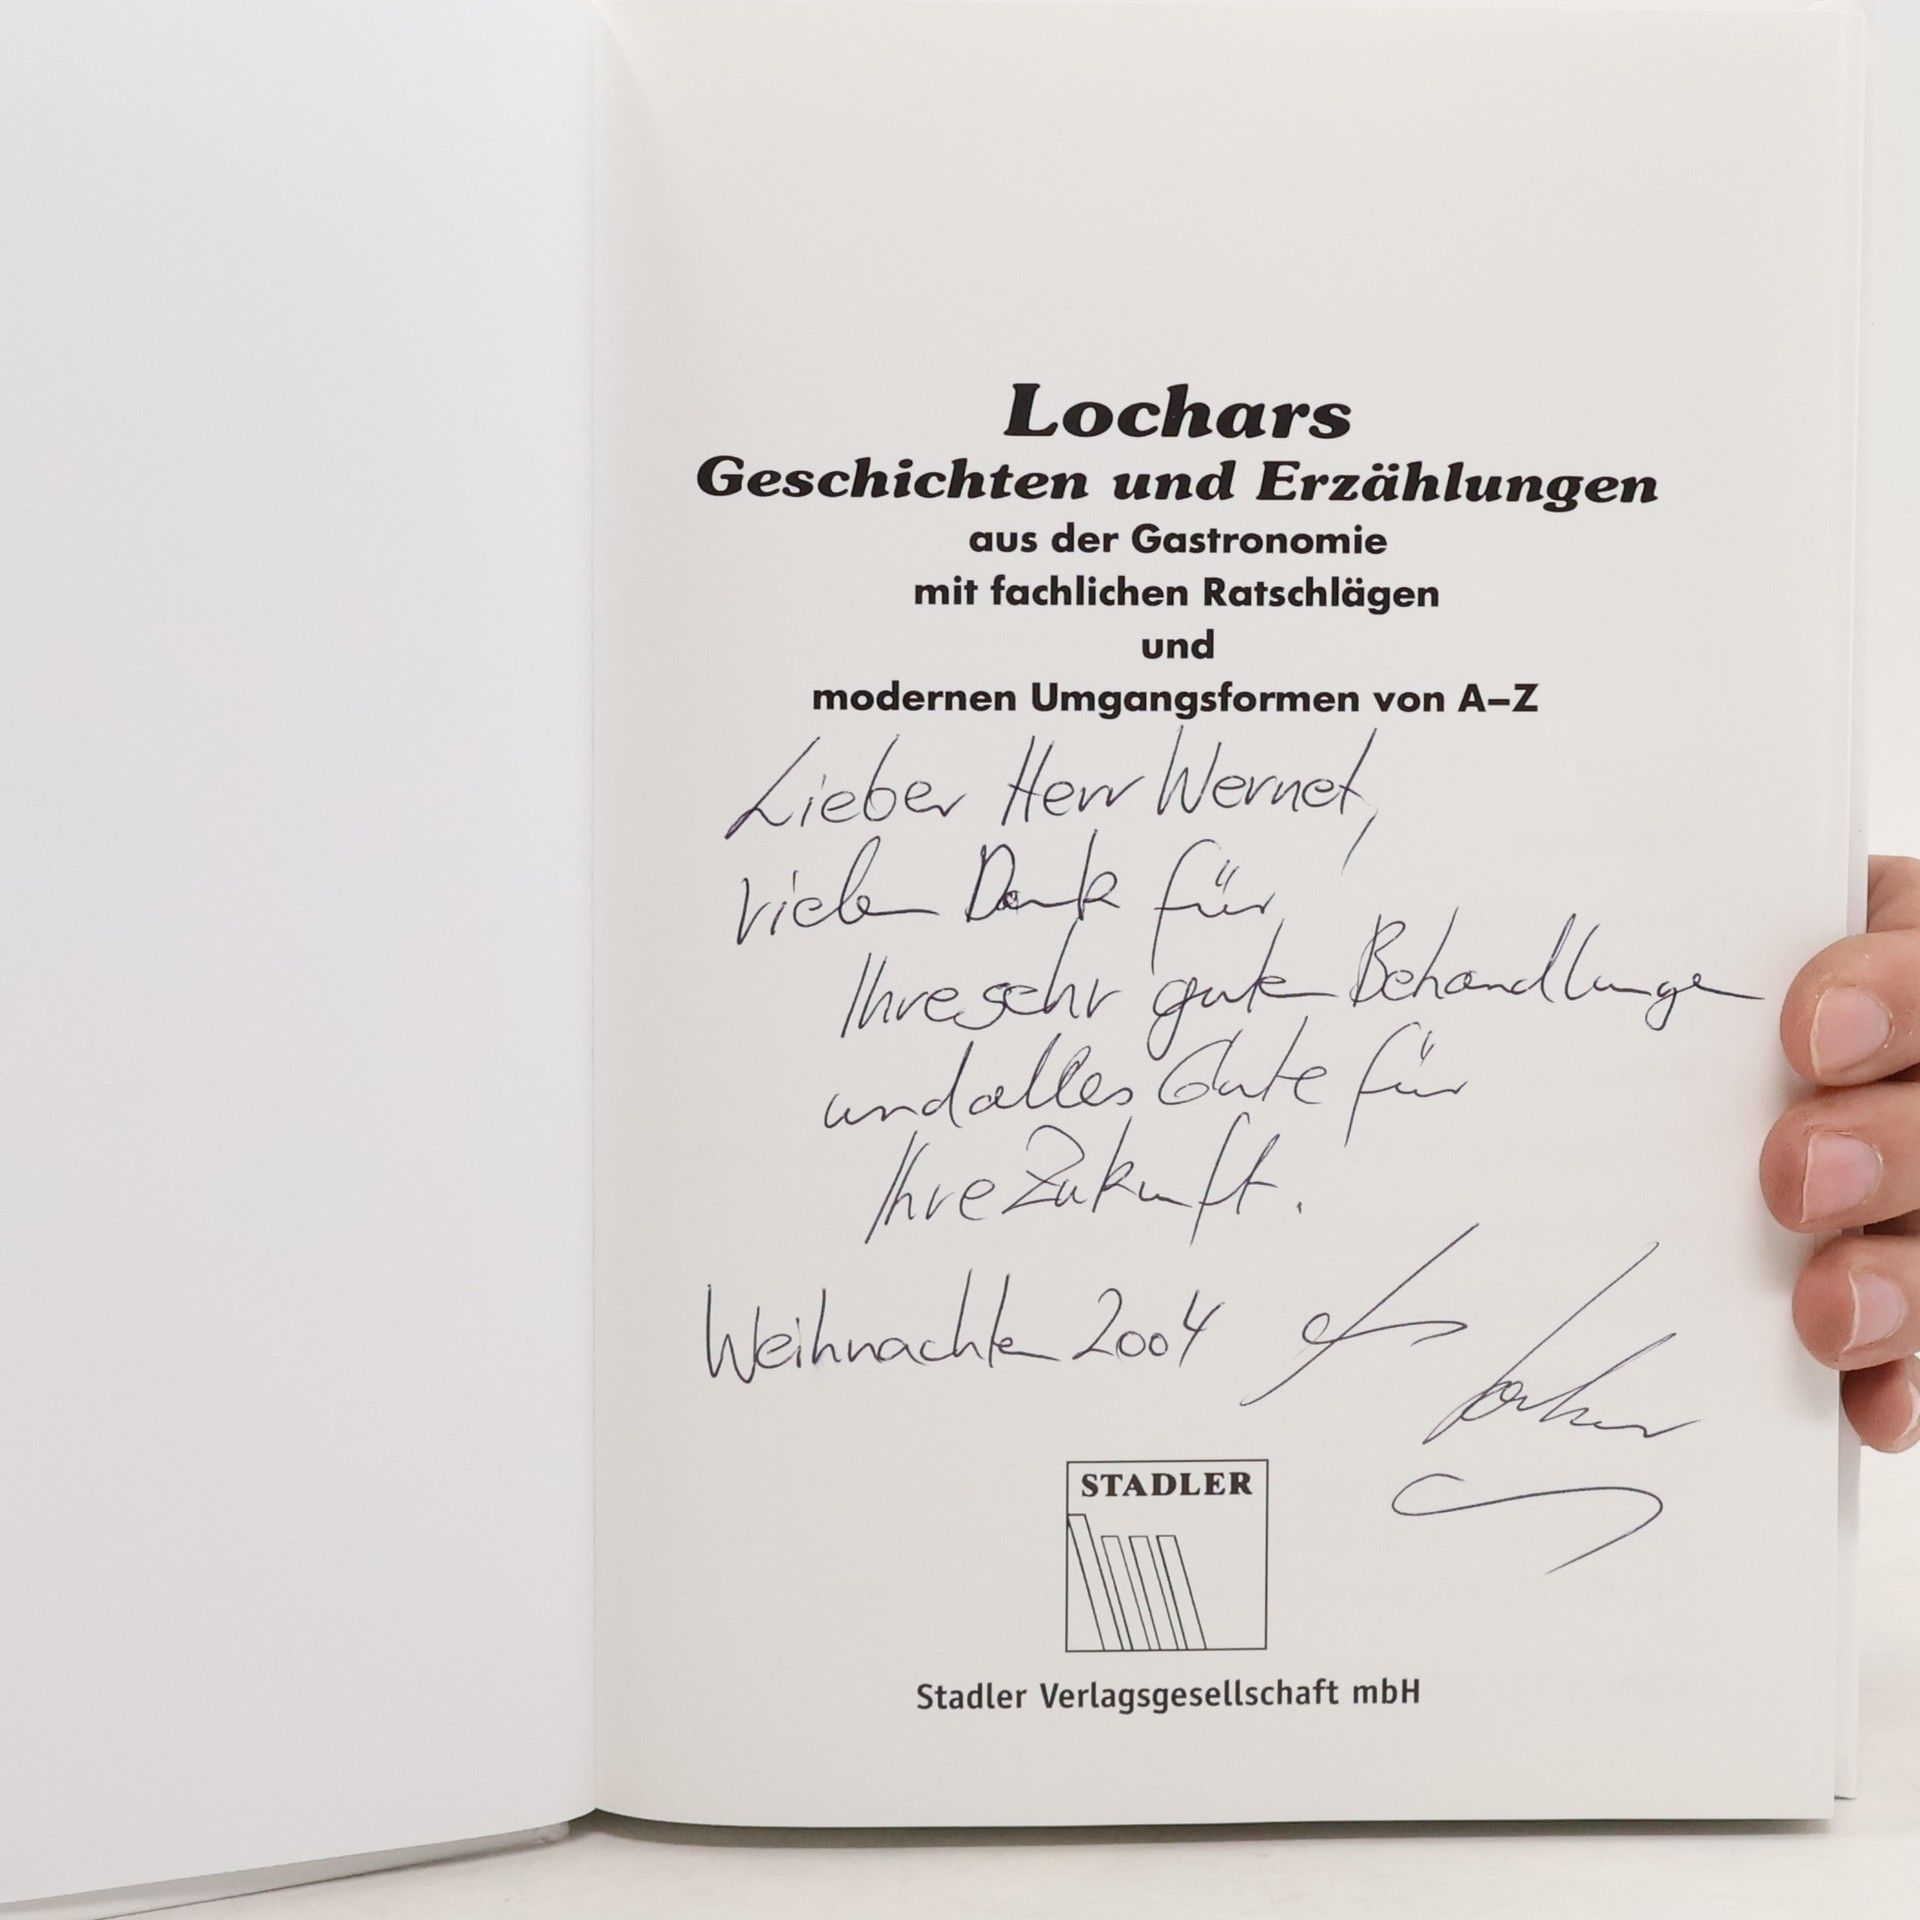 Lochars
Geschichten und Erzählungen
aus der Gastronomie
mit fachlichen Ratschlägen
und
modernen Umgangsformen von A–Z
Lieber Herr Wernet,
vielen Dank für
Ihre sehr guten Behandlungen
und alles Gute für
Ihre Zukunft.
Weihnachten 2004
STADLER
Stadler Verlagsgesellschaft mbH